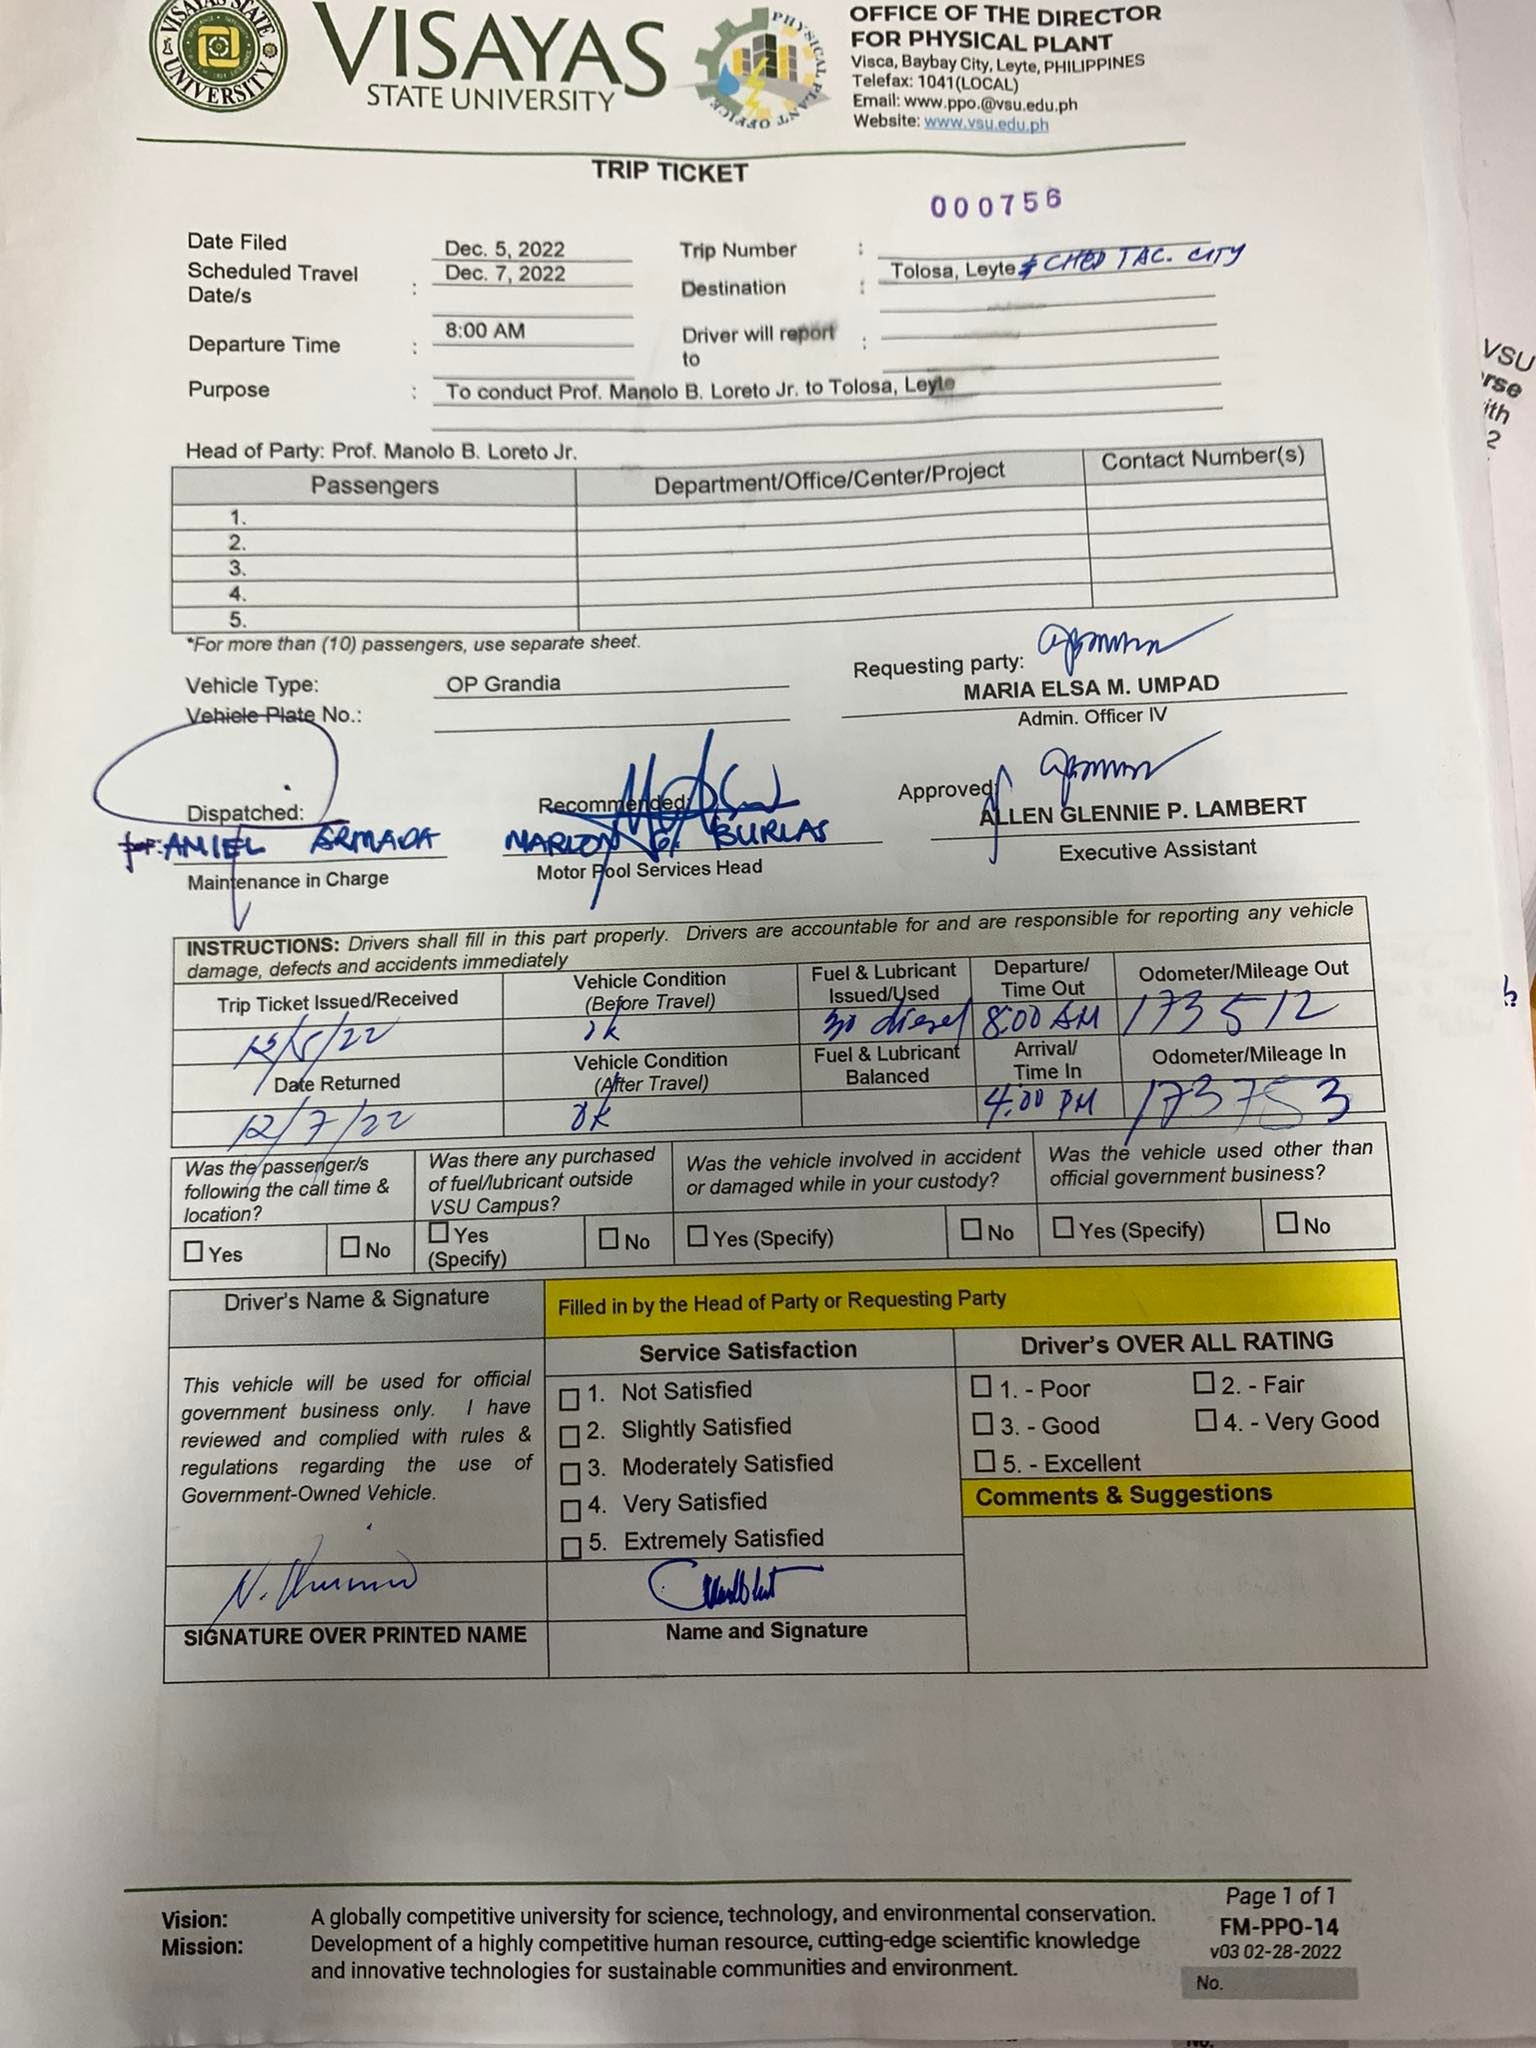 VISAYAS STATE UNIVERSITY
VISAYAS
STATE UNIVERSITY
PHYSICAL PLANT OFFICE
OFFICE OF THE DIRECTOR
FOR PHYSICAL PLANT
Visca, Baybay City, Leyte, PHILIPPINES
Telefax: 1041(LOCAL)
Email: www.ppo.@vsu.edu.ph
Website: www.vsu.edu.ph
TRIP TICKET
000756
Date Filed Dec. 5, 2022 Trip Number :
Scheduled Travel Date/s : Dec. 7, 2022 Destination : Tolosa, Leyte & CHED TAC. CITY
Departure Time : 8:00 AM Driver will report to :
Purpose : To conduct Prof. Manolo B. Loreto Jr. to Tolosa, Leyte
Head of Party: Prof. Manolo B. Loreto Jr.
Passengers Department/Office/Center/Project Contact Number(s)
1.
2.
3.
4.
5.
*For more than (10) passengers, use separate sheet.
Requesting party:
Vehicle Type: OP Grandia MARIA ELSA M. UMPAD
Vehicle Plate No.: Admin. Officer IV
Dispatched: Recommended: Approved:
for: AMIEL ARMADA MARLON BURLAS ALLEN GLENNIE P. LAMBERT
Maintenance in Charge Motor Pool Services Head Executive Assistant
INSTRUCTIONS: Drivers shall fill in this part properly. Drivers are accountable for and are responsible for reporting any vehicle
damage, defects and accidents immediately
Trip Ticket Issued/Received Vehicle Condition (Before Travel) Fuel & Lubricant Issued/Used Departure/ Time Out Odometer/Mileage Out
12/5/22 ok 30 diesel 8:00 AM 173512
Date Returned Vehicle Condition (After Travel) Fuel & Lubricant Balanced Arrival/ Time In Odometer/Mileage In
12/7/22 ok 4:00 PM 173753
Was the passenger/s following the call time & location? Was there any purchased of fuel/lubricant outside VSU Campus? Was the vehicle involved in accident or damaged while in your custody? Was the vehicle used other than official government business?
Yes No Yes (Specify) No Yes (Specify) No Yes (Specify) No
Driver's Name & Signature Filled in by the Head of Party or Requesting Party
Service Satisfaction Driver's OVER ALL RATING
This vehicle will be used for official
government business only. I have
reviewed and complied with rules &
regulations regarding the use of
Government-Owned Vehicle.
1. Not Satisfied
2. Slightly Satisfied
3. Moderately Satisfied
4. Very Satisfied
5. Extremely Satisfied
1. - Poor 2. - Fair
3. - Good 4. - Very Good
5. - Excellent
Comments & Suggestions
SIGNATURE OVER PRINTED NAME Name and Signature
Vision: A globally competitive university for science, technology, and environmental conservation.
Mission: Development of a highly competitive human resource, cutting-edge scientific knowledge
and innovative technologies for sustainable communities and environment.
Page 1 of 1
FM-PPO-14
v03 02-28-2022
No.
VSU
ith
2